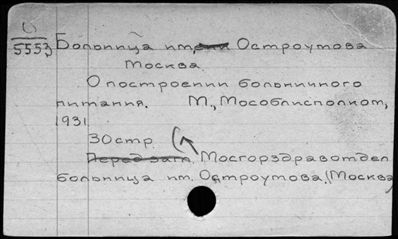 6
5553 Больница им. Остроумова
Москва.
О построении больничного
питания. М., Мособлисполком,
1931
30стр.
Перед загл. Мосгорздравотдел
больница им. Остроумова. (Москва